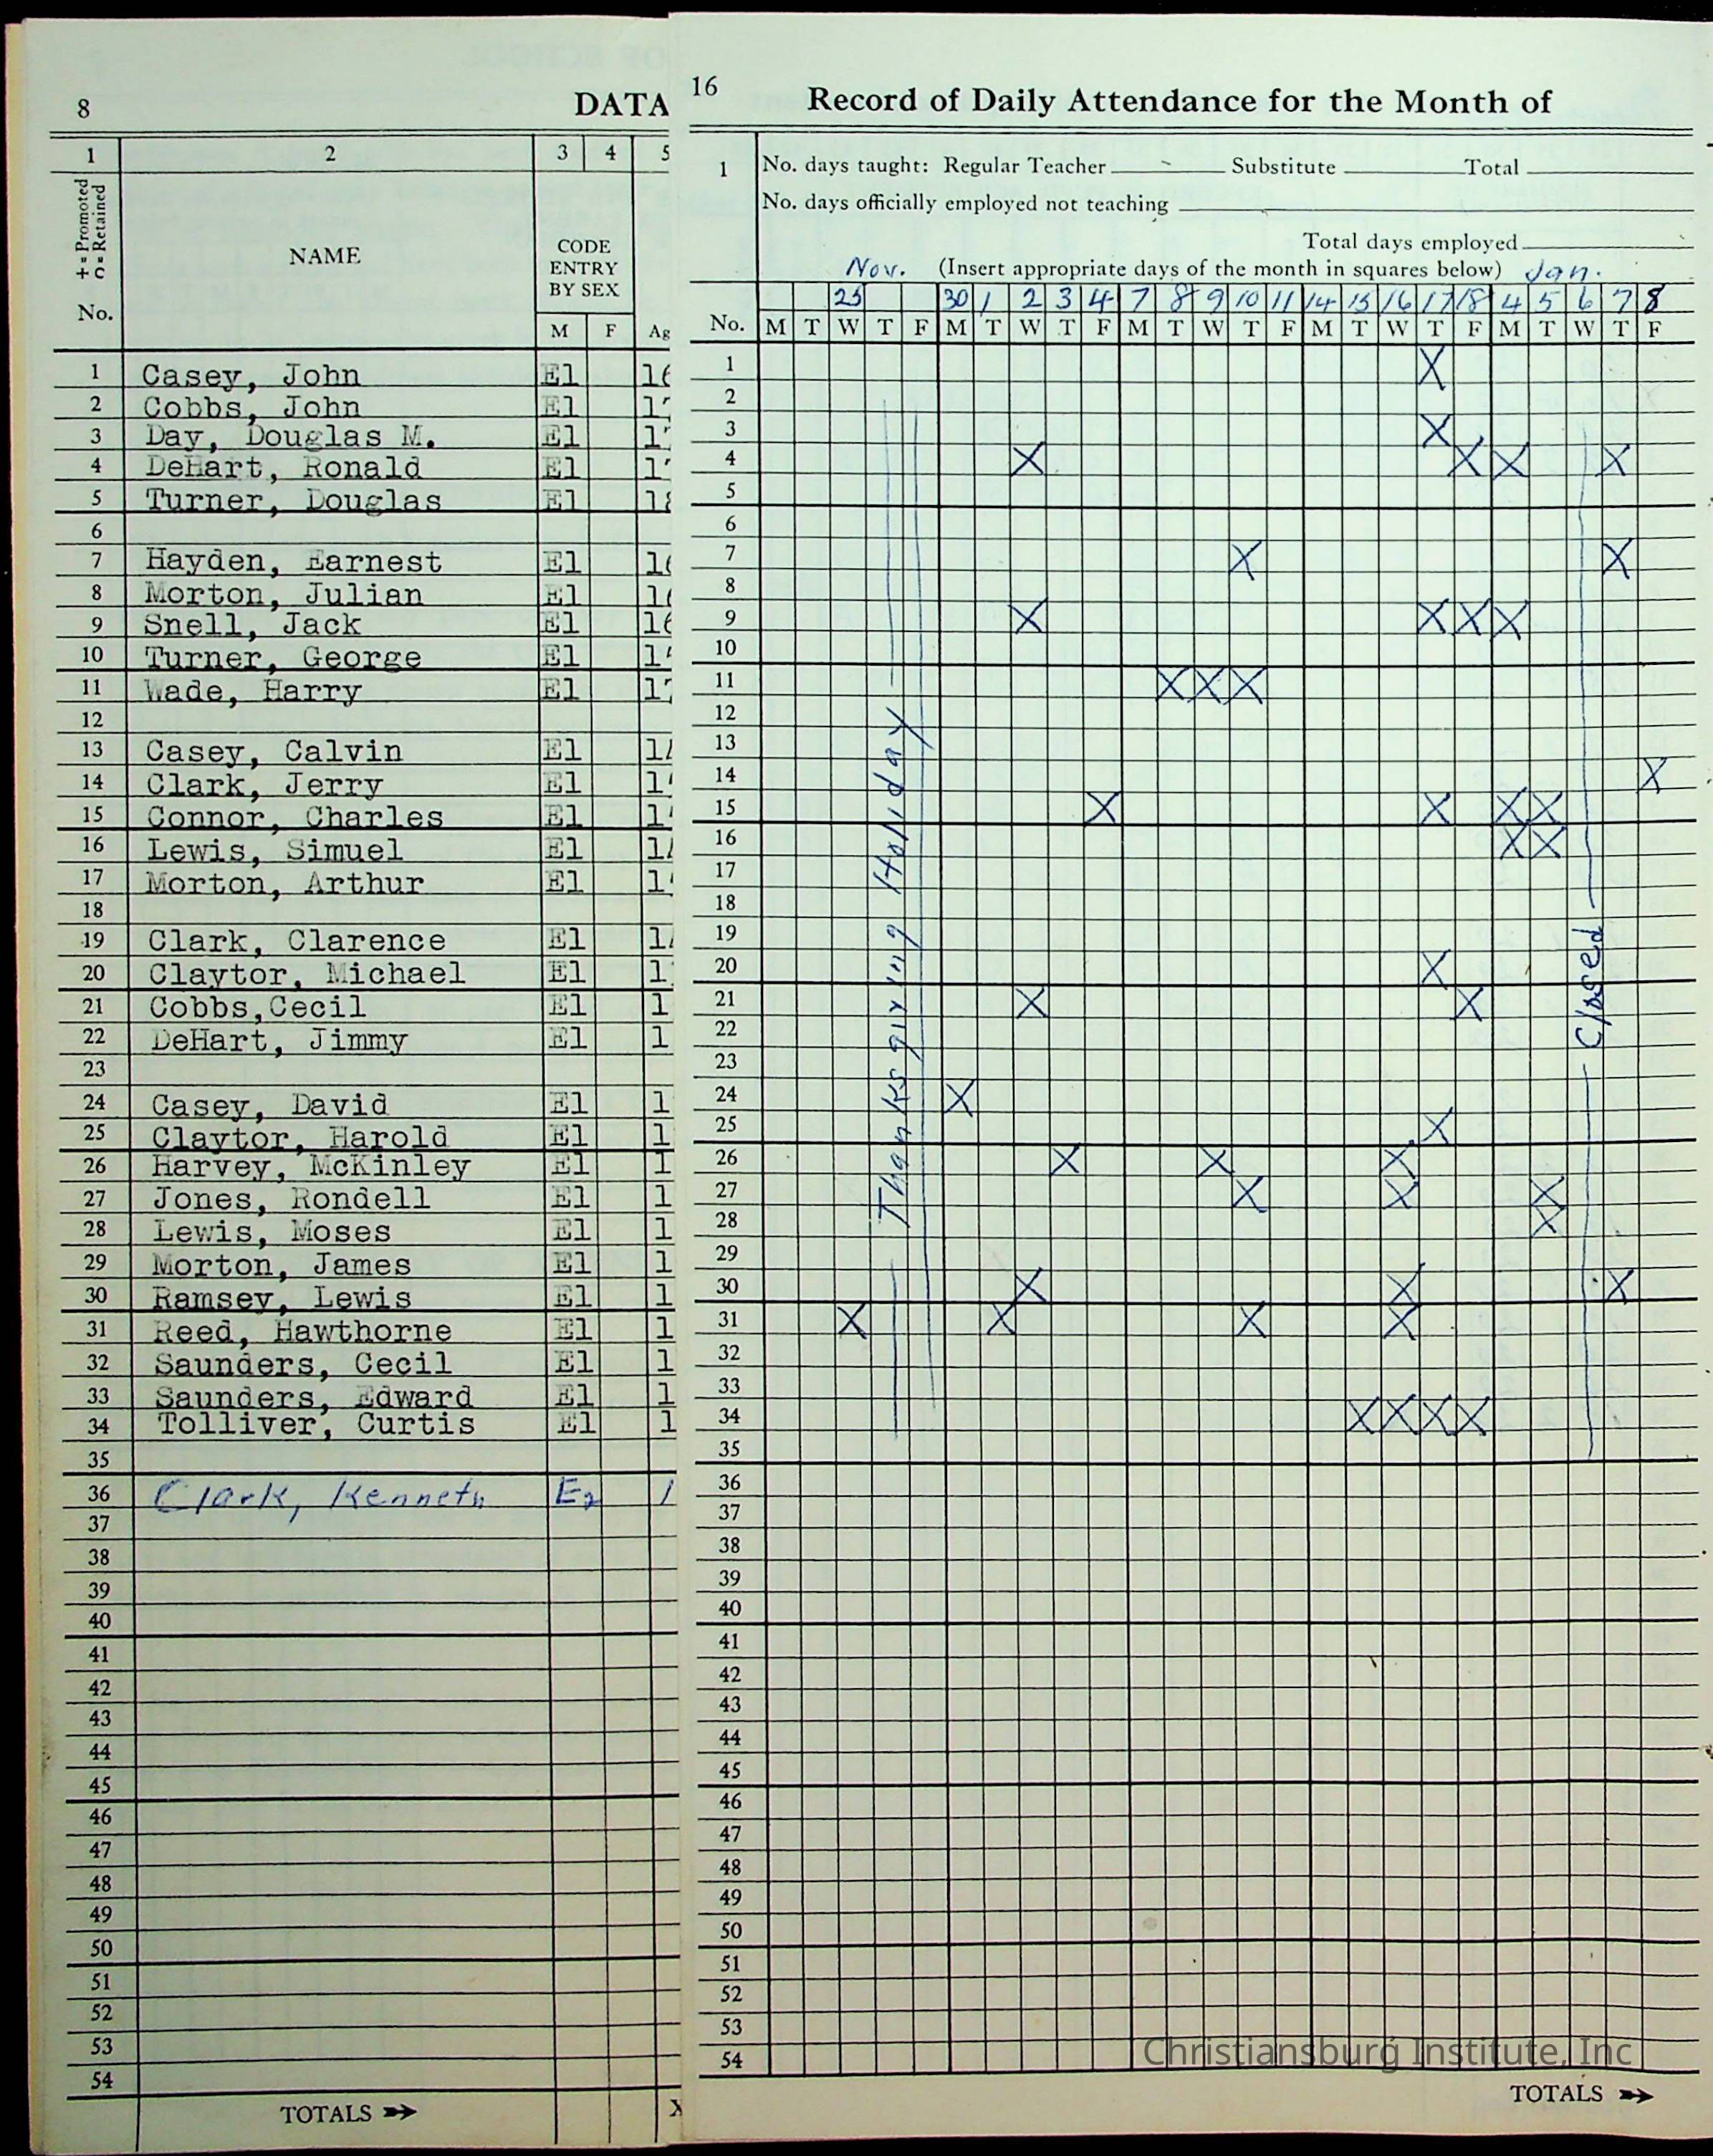 8
DATA
1 2 3 4 5
+ = Promoted
c = Retained
No.
NAME
CODE
ENTRY
BY SEX
M F Ag
1 Casey, John El 16
2 Cobbs, John El 17
3 Day, Douglas M. El 1
4 DeHart, Ronald El 1
5 Turner, Douglas El 18
6
7 Hayden, Earnest El 16
8 Morton, Julian El 16
9 Snell, Jack El 16
10 Turner, George El 1
11 Wade, Harry El 17
12
13 Casey, Calvin El 14
14 Clark, Jerry El 1
15 Connor, Charles El 1
16 Lewis, Simuel El 14
17 Morton, Arthur El 1
18
19 Clark, Clarence El 1
20 Claytor, Michael El 1
21 Cobbs,Cecil El 1
22 DeHart, Jimmy El 1
23
24 Casey, David El 1
25 Claytor, Harold El 1
26 Harvey, McKinley El 1
27 Jones, Rondell El 1
28 Lewis, Moses El 1
29 Morton, James El 1
30 Ramsey, Lewis El 1
31 Reed, Hawthorne El 1
32 Saunders, Cecil El 1
33 Saunders, Edward El 1
34 Tolliver, Curtis El 1
35
36 Clark, Kenneth E2 1
37
38
39
40
41
42
43
44
45
46
47
48
49
50
51
52
53
54
TOTALS
X
16
Record of Daily Attendance for the Month of
1 No. days taught: Regular Teacher Substitute Total
No. days officially employed not teaching
Total days employed
Nov. (Insert appropriate days of the month in squares below) Jan.
25 30 1 2 3 4 7 8 9 10 11 14 15 16 17 18 4 5 6 7 8
No. M T W T F M T W T F M T W T F M T W T F M T W T F
1 X
2
3 X
4 X X X X
5
6
7 X X
8
9 X X X X
10
11 X X X
12
13
14 X
15 X X X X
16 X X
17
18
19
20 X
21 X X
22
23
24 X
25 X
26 X X X
27 X X X
28 X
29
30 X X X
31 X X X X
32
33
34 X X X X
35
36
37
38
39
40
41
42
43
44
45
46
47
48
49
50
51
52
53
54
Thanksgiving Holiday
Closed
TOTALS
Christiansburg Institute, Inc